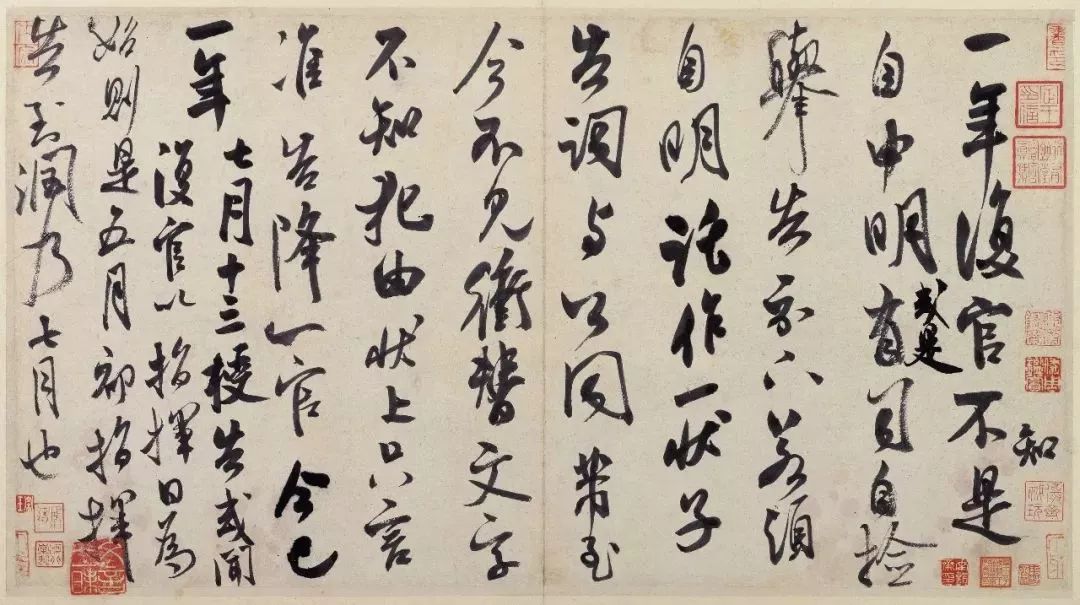 一年復官不是知
自申明或是有司自檢
舉告示下若須
自明託作一狀子
告詞与公同帶至
今不見衝替文字
不知犯由狀上只言
准告降一官今已
一年
七月十三授告或聞
復官以指揮日為
始則是五月初指揮
告到潤乃七月也